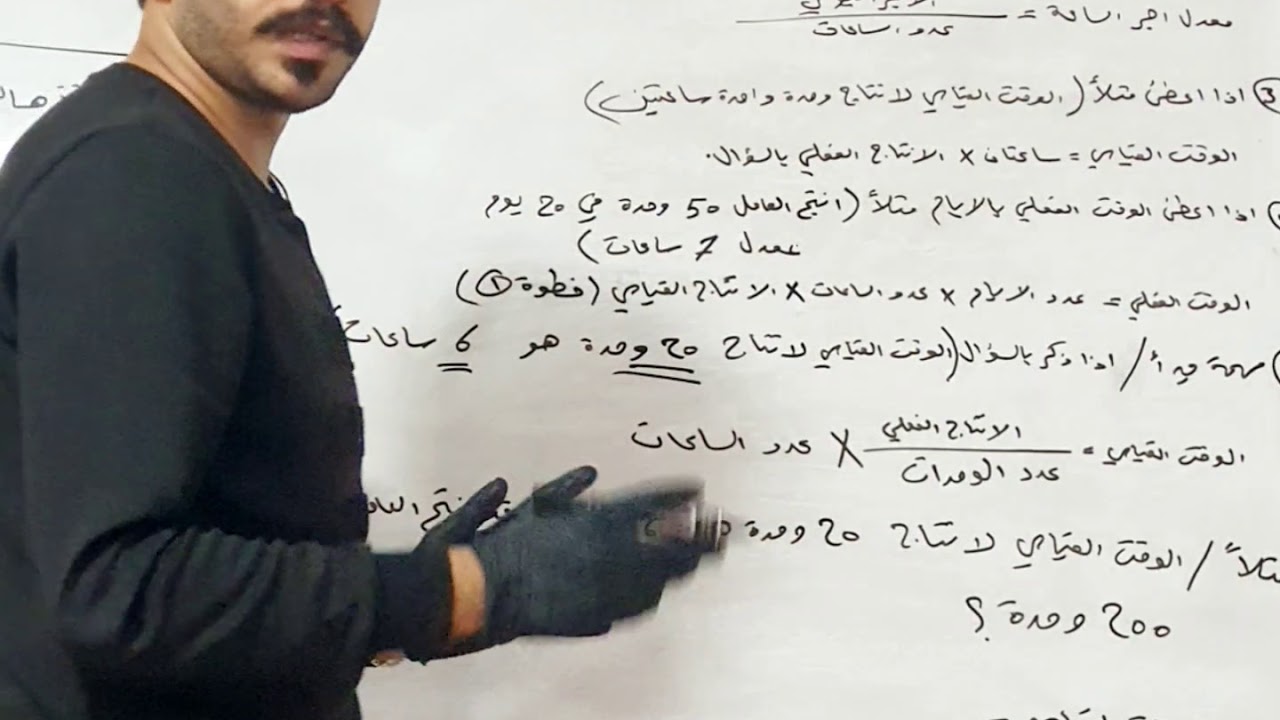 معدل اجر الساعة =
عدد الساعات
③ اذا اعطى مثلاً ( الوقت القياسي لانتاج وحدة واحدة ساعتين )
الوقت القياسي = ساعتان × الانتاج الفعلي بالسؤال .
اذا اعطى الوقت الفعلي بالايام مثلاً ( انتج العامل 50 وحدة في 20 يوم
بمعدل 7 ساعات )
الوقت الفعلي = عدد الايام × عدد الساعات × الانتاج القياسي ( خطوة ① )
اذا ذكر بالسؤال ( الوقت القياسي لانتاج 20 وحدة هو 6 ساعات
الوقت القياسي = الانتاج الفعلي / عدد الوحدات × عدد الساعات
مثلاً / الوقت القياسي لانتاج 20 وحدة
200 وحدة ؟